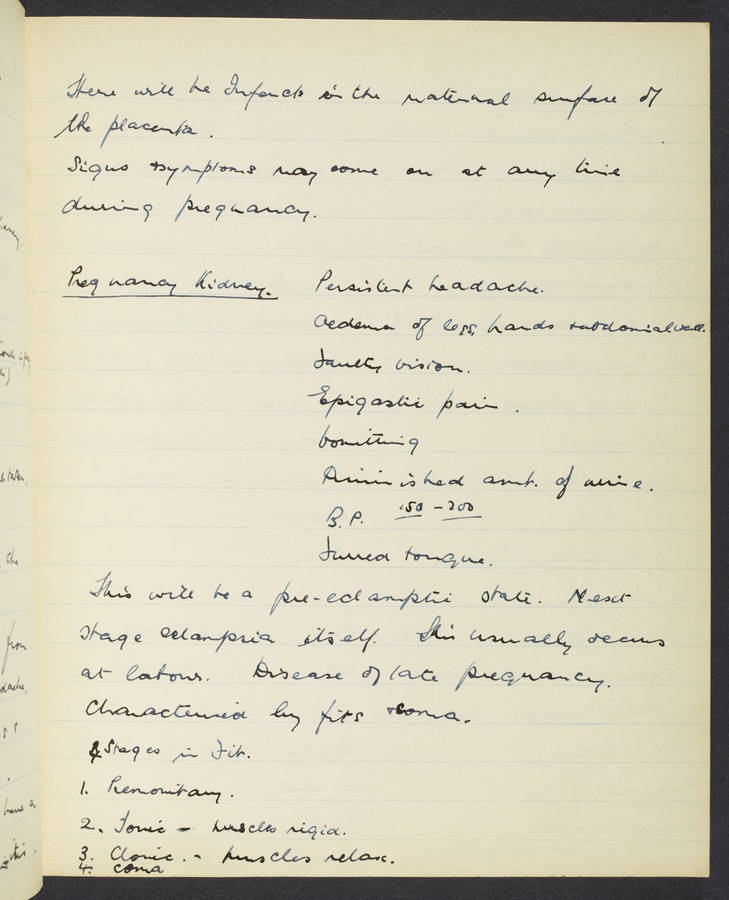 There will be Infarcts in the maternal surface of
the placenta.
Signs & symptoms may come on at any time
during pregnancy.
Pregnancy Kidney. Persistent headache.
Oedema of legs, hands & abdominal wall.
Faulty vision.
Epigastric pain.
Vomitting
Diminished amt. of urine.
B.P. 150 - 200
Furred tongue.
This will be a pre-eclamptic state. Next
stage eclampsia itself. This usually occurs
at labour. Disease of late pregnancy.
Characterised by fits & coma.
4 Stages in Fit.
1. Premonitary.
2. Tonic - muscles rigid.
3. Clonic. - muscles relax.
4. coma